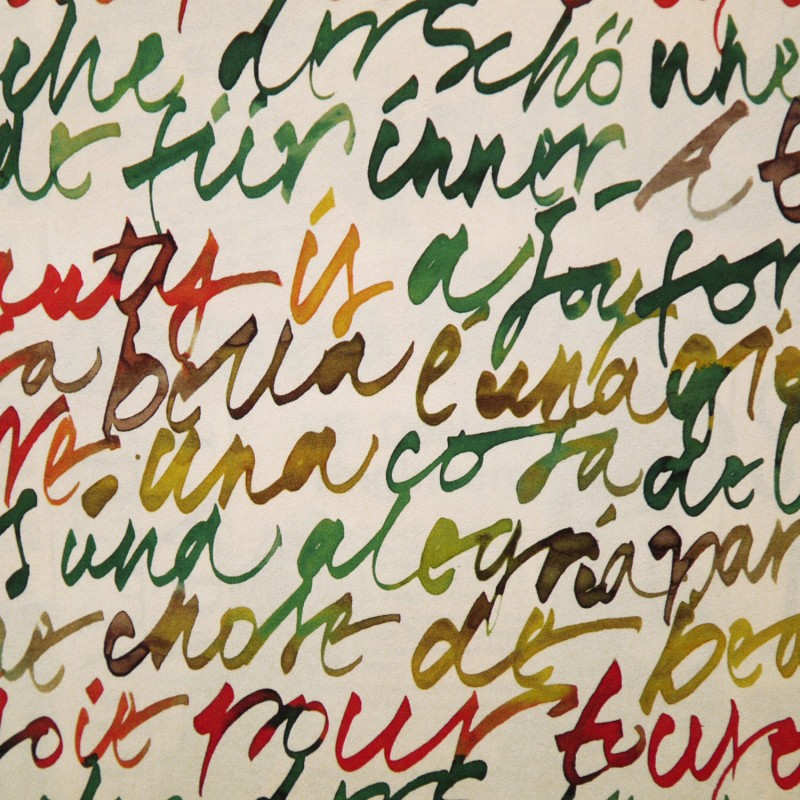 che der Schönhe
de für immer. A t
auty is a joy for
a bella é una gio
re. una cosa del
s una alegría par
ne chose de bea
joie pour touje